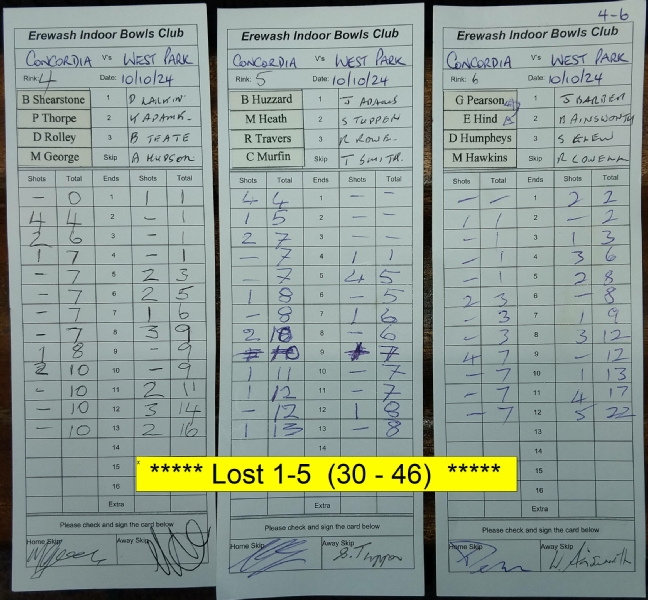 4-6
Erewash Indoor Bowls Club
CONCORDIA V's WEST PARK
Rink: 4 Date: 10/10/24
B Shearstone 1 D LARKIN
P Thorpe 2 K ADAMS
D Rolley 3 B TEATE
M George Skip A HUDSON
Shots Total Ends Shots Total
- 0 1 1 1
4 4 2 - 1
2 6 3 - 1
1 7 4 - 1
- 7 5 2 3
- 7 6 2 5
- 7 7 1 6
- 7 8 3 9
1 8 9 - 9
2 10 10 - 9
- 10 11 2 11
- 10 12 3 14
- 10 13 2 16
14
15
16
Extra
Please check and sign the card below
Home Skip Away Skip
Erewash Indoor Bowls Club
CONCORDIA V's WEST PARK
Rink: 5 Date: 10/10/24
B Huzzard 1 J ADAMS
M Heath 2 S TUPPEN
R Travers 3 R ROWE
C Murfin Skip T SMITH
Shots Total Ends Shots Total
4 4 1 - -
1 5 2 - -
2 7 3 - -
- 7 4 1 1
- 7 5 4 5
1 8 6 - 5
- 8 7 1 6
2 10 8 - 6
10 9 7
1 11 10 - 7
1 12 11 - 7
- 12 12 1 8
1 13 13 - 8
14
16
Extra
Please check and sign the card below
Home Skip Away Skip
S. Tuppen
Erewash Indoor Bowls Club
CONCORDIA V's WEST PARK
Rink: 6 Date: 10/10/24
G Pearson 1 J BARBER
E Hind 2 AINSWORTH
D Humpheys 3 S
M Hawkins Skip R
Shots Total Ends Shots Total
- - 1 2 2
1 1 2 - 2
- 1 3 1 3
- 1 4 3 6
- 1 5 2 8
2 3 6 - 8
- 3 7 1 9
- 3 8 3 12
4 7 9 - 12
- 7 10 1 13
- 7 11 4 17
- 7 12 5 22
13
14
15
16
Extra
Please check and sign the card below
Home Skip Away Skip
Ainsworth
***** Lost 1-5 (30 - 46) *****